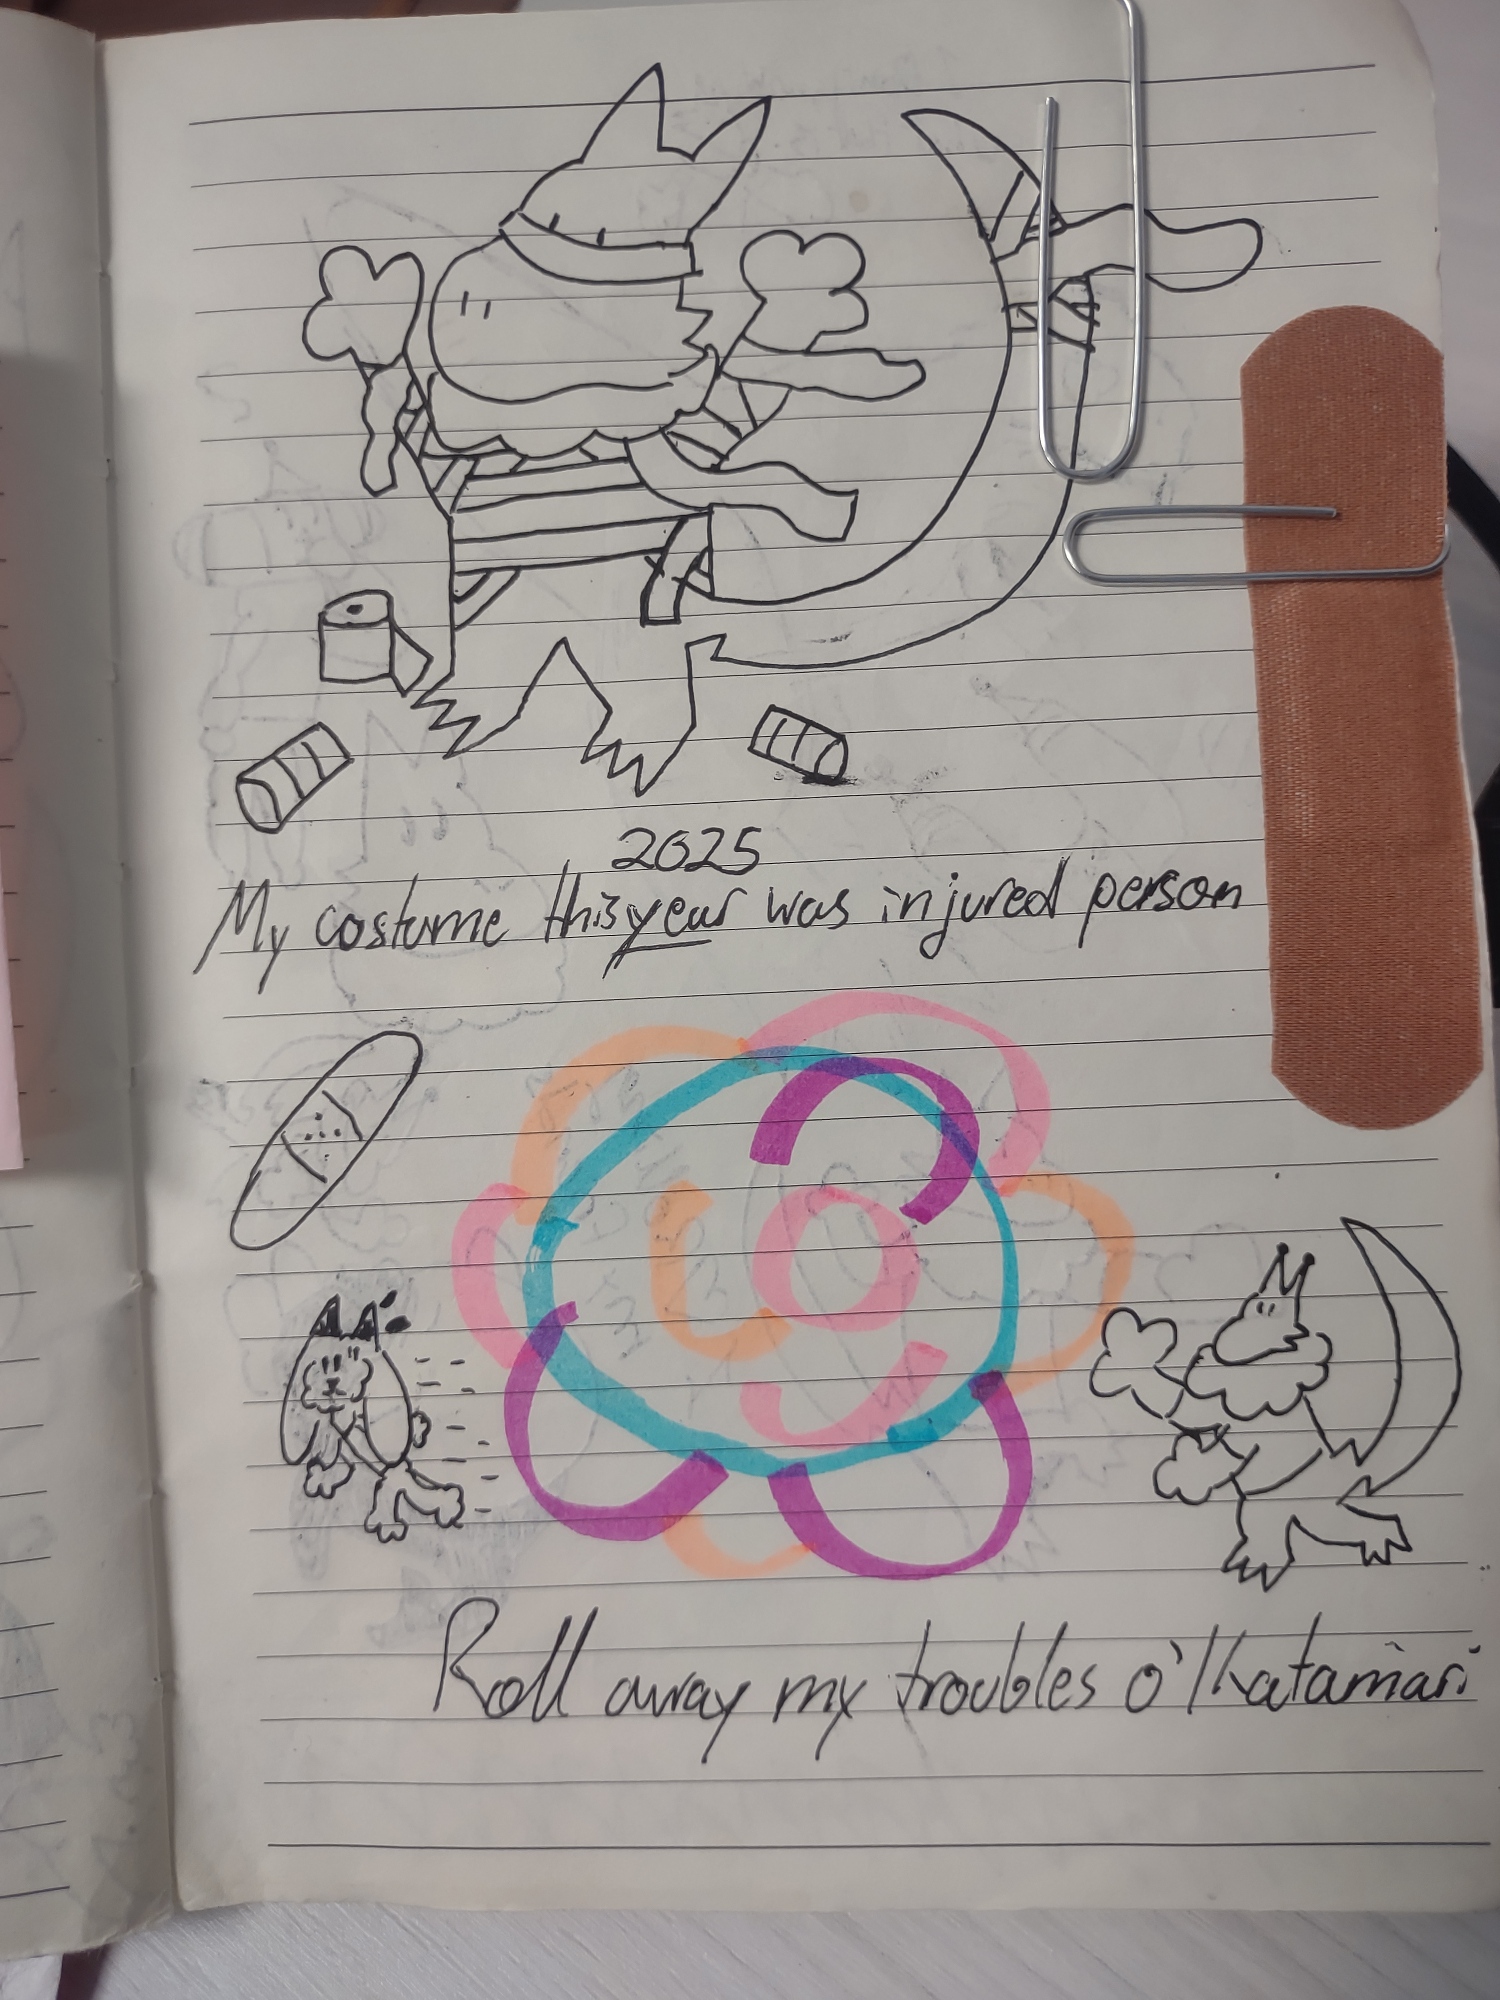 2025
My costume this year was injured person
Roll away my troubles o' Katamari